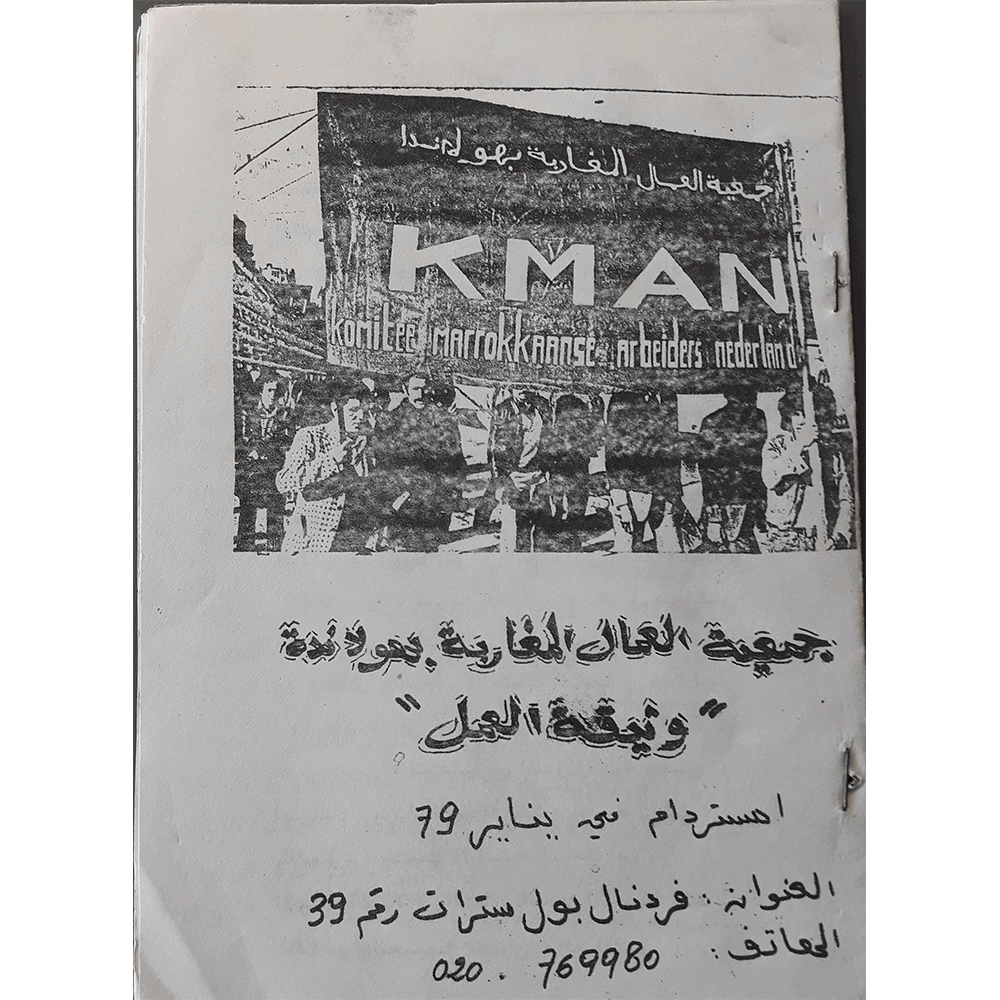 جمعية العمال المغاربة بهولاندا
KMAN
komitee marrokkaanse arbeiders nederland
جمعية العمال المغاربة بهولاندة
"وثيقة العمل"
امستردام في يناير 79
العنوان : فردنال بول سترات رقم 39
الهاتف : 020 . 769980